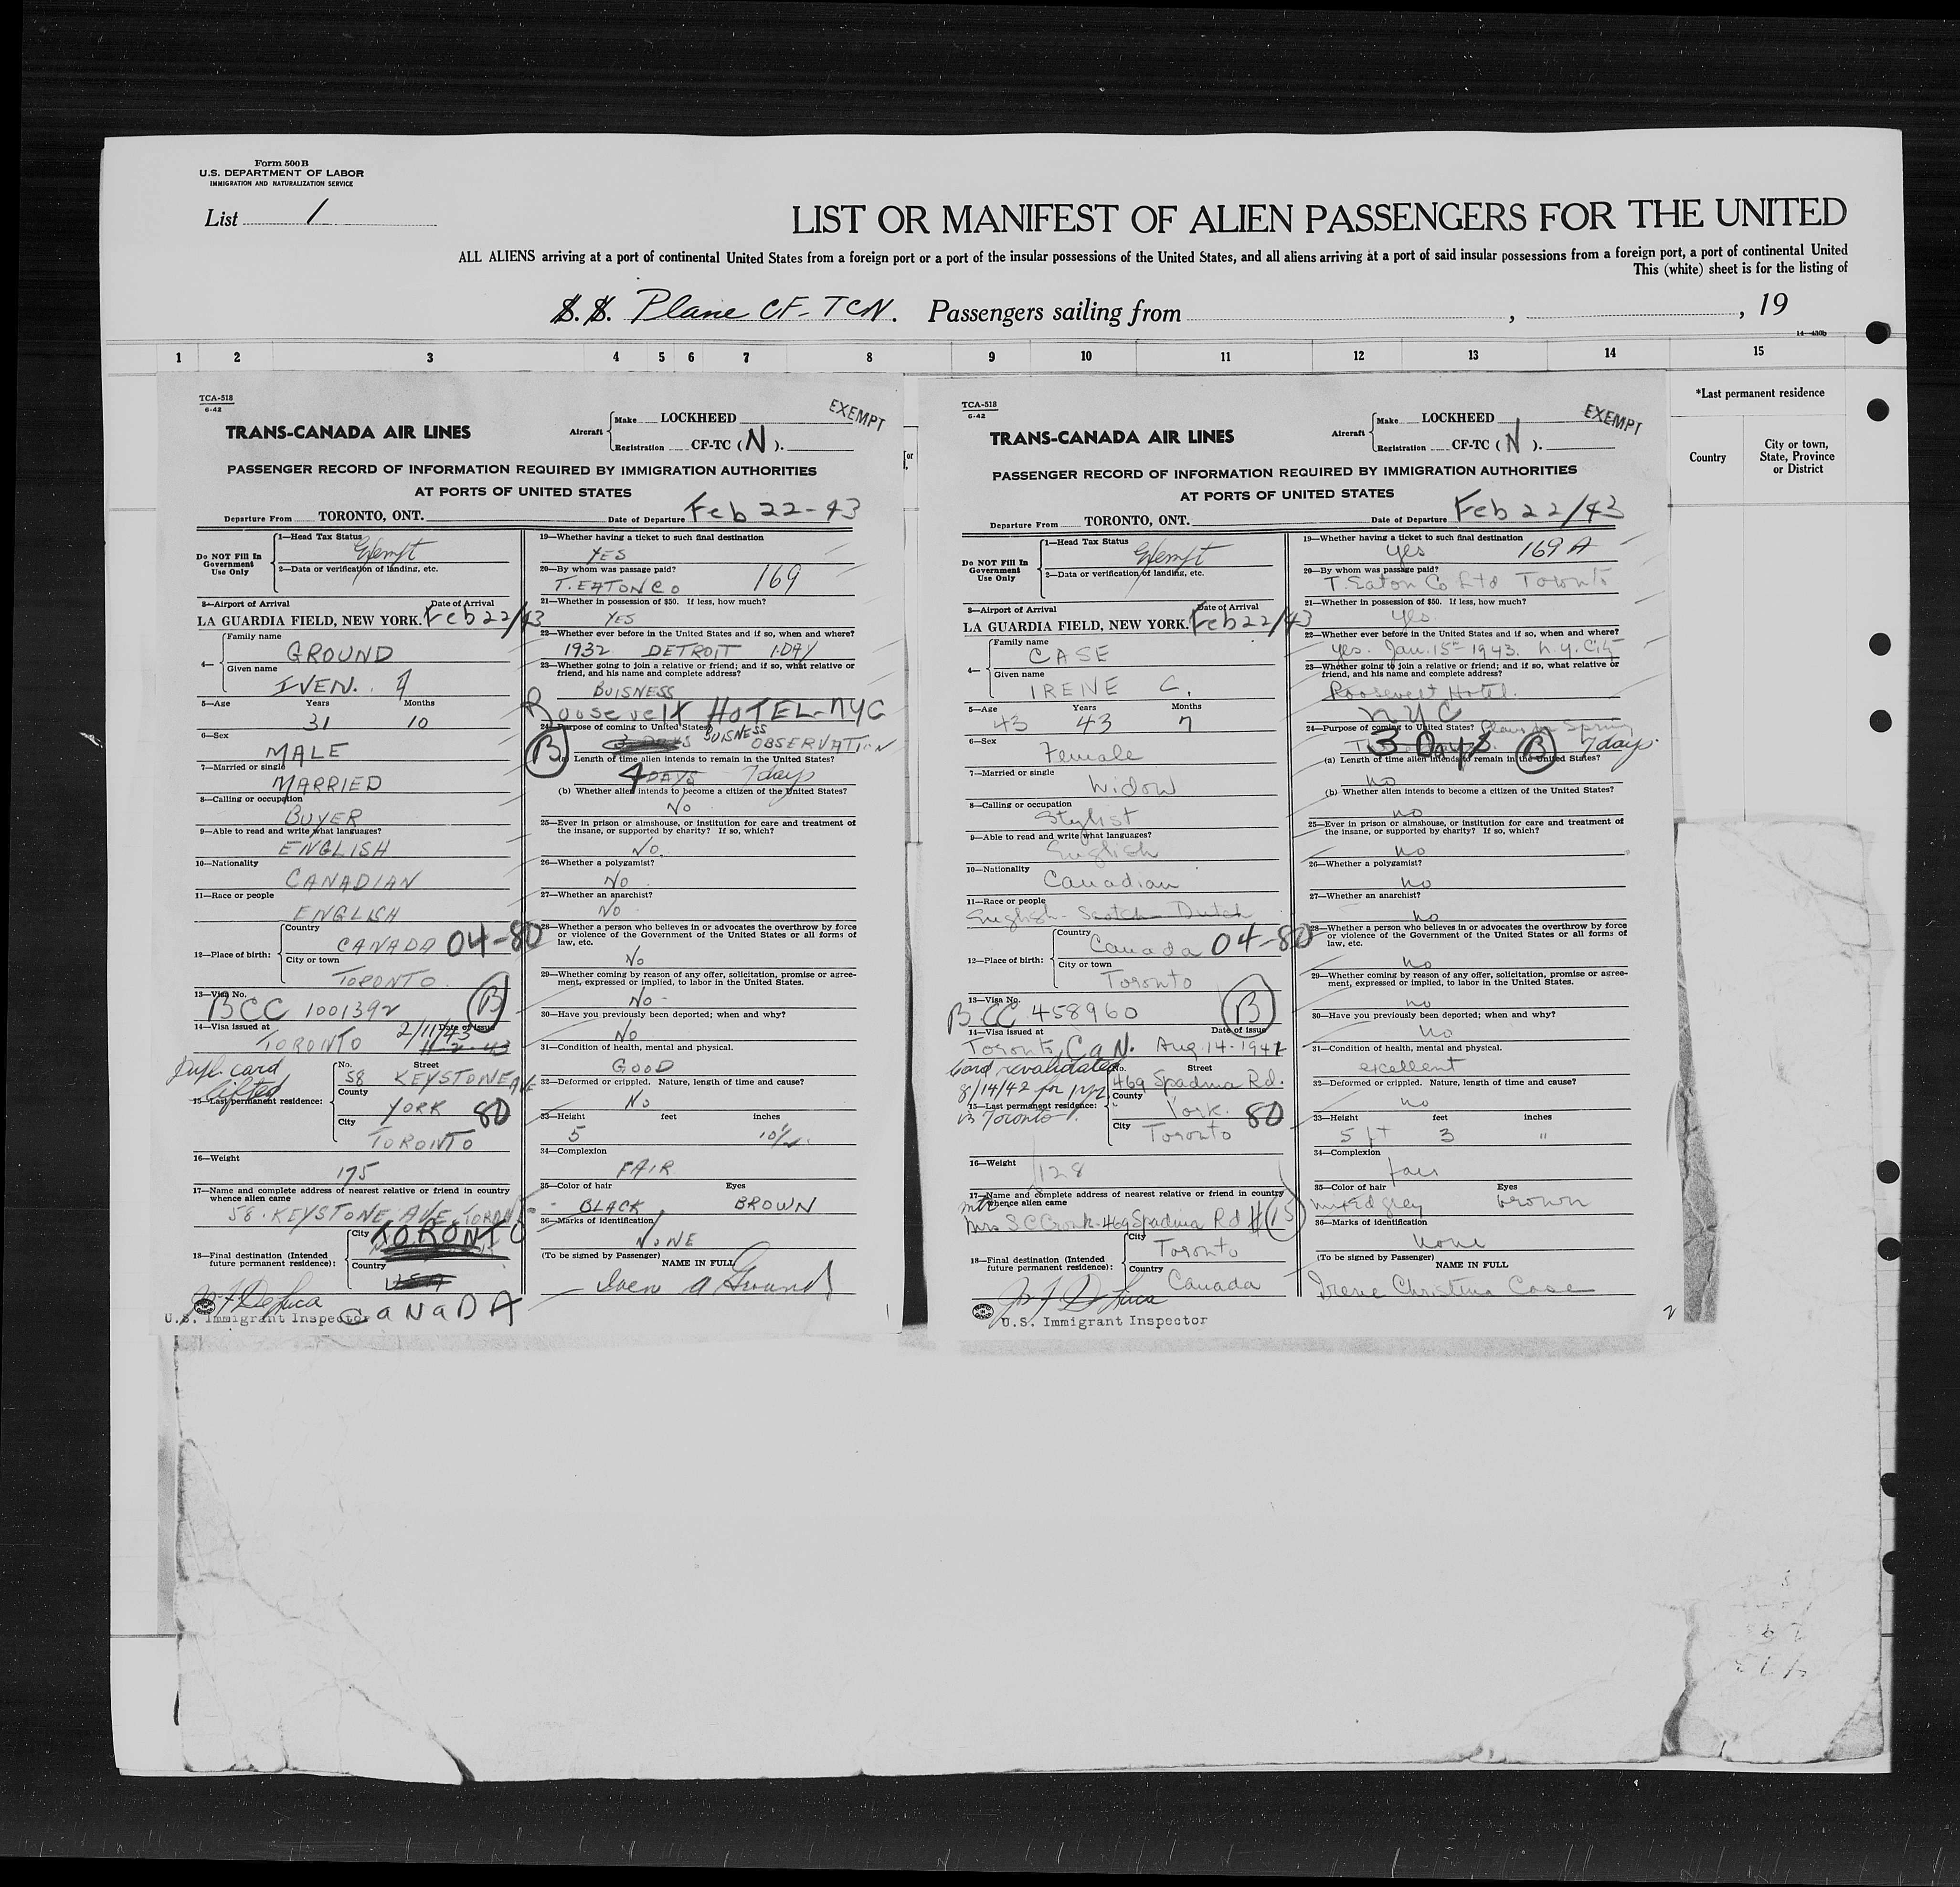 Form 500B
U.S. DEPARTMENT OF LABOR
IMMIGRATION AND NATURALIZATION SERVICE
List 1
LIST OR MANIFEST OF ALIEN PASSENGERS FOR THE UNITED
ALL ALIENS arriving at a port of continental United States from a foreign port or a port of the insular possessions of the United States, and all aliens arriving at a port of said insular possessions from a foreign port, a port of continental United
This (white) sheet is for the listing of
S.S. Plane CF-TCN. Passengers sailing from , , 19
1 2 3 4 5 6 7 8 9 10 11 12 13 14 15
*Last permanent residence
Country
City or town, State, Province or District
TCA-518
6-42
EXEMPT
TRANS-CANADA AIR LINES
Aircraft Make LOCKHEED
Registration CF-TC (N).
PASSENGER RECORD OF INFORMATION REQUIRED BY IMMIGRATION AUTHORITIES
AT PORTS OF UNITED STATES
Departure From TORONTO, ONT. Date of Departure Feb 22-43
Do NOT Fill In Government Use Only
1—Head Tax Status Exempt
2—Data or verification of landing, etc.
3—Airport of Arrival Date of Arrival
LA GUARDIA FIELD, NEW YORK. Feb 22/43
4— Family name
GROUND
Given name
IVEN. A
5—Age Years Months
31 10
6—Sex
MALE
7—Married or single
MARRIED
8—Calling or occupation
BUYER
9—Able to read and write what languages?
ENGLISH
10—Nationality
CANADIAN
11—Race or people
ENGLISH
12—Place of birth: Country
CANADA 04-80
City or town
TORONTO
13—Visa No.
BCC 1001392 B
14—Visa issued at Date of issue
TORONTO 2/11/43
11-2-43
Dupl. card
lifted
15—Last permanent residence:
No. Street
58 KEYSTONE AVE
County
YORK 80
City
TORONTO
16—Weight
175
17—Name and complete address of nearest relative or friend in country whence alien came
58. KEYSTONE AVE. TORONTO
18—Final destination (Intended future permanent residence):
City TORONTO
Country USA
CANADA
U.S. Immigrant Inspector
19—Whether having a ticket to such final destination
YES
20—By whom was passage paid?
T. EATON CO 169
21—Whether in possession of $50. If less, how much?
YES
22—Whether ever before in the United States and if so, when and where?
1932 DETROIT 1-DAY
23—Whether going to join a relative or friend; and if so, what relative or friend, and his name and complete address?
BUISNESS
Roosevelt HOTEL-NYC
24—Purpose of coming to United States?
B BUISNESS OBSERVATION
(a) Length of time alien intends to remain in the United States?
4 DAYS 7 days
(b) Whether alien intends to become a citizen of the United States?
No
25—Ever in prison or almshouse, or institution for care and treatment of the insane, or supported by charity? If so, which?
No.
26—Whether a polygamist?
No
27—Whether an anarchist?
No
28—Whether a person who believes in or advocates the overthrow by force or violence of the Government of the United States or all forms of law, etc.
No
29—Whether coming by reason of any offer, solicitation, promise or agreement, expressed or implied, to labor in the United States.
No-
30—Have you previously been deported; when and why?
No
31—Condition of health, mental and physical.
GOOD
32—Deformed or crippled. Nature, length of time and cause?
No
33—Height feet inches
5 10½
34—Complexion
FAIR
35—Color of hair Eyes
BLACK BROWN
36—Marks of identification
NONE
(To be signed by Passenger) NAME IN FULL
Iven A Ground
TCA-518
6-42
EXEMPT
TRANS-CANADA AIR LINES
Aircraft Make LOCKHEED
Registration CF-TC (N).
PASSENGER RECORD OF INFORMATION REQUIRED BY IMMIGRATION AUTHORITIES
AT PORTS OF UNITED STATES
Departure From TORONTO, ONT. Date of Departure Feb 22/43
Do NOT Fill In Government Use Only
1—Head Tax Status Exempt
2—Data or verification of landing, etc.
3—Airport of Arrival Date of Arrival
LA GUARDIA FIELD, NEW YORK. Feb 22/43
4— Family name
CASE
Given name
IRENE C.
5—Age Years Months
43 43 7
6—Sex
Female
7—Married or single
Widow
8—Calling or occupation
Stylist
9—Able to read and write what languages?
English
10—Nationality
Canadian
11—Race or people
English-Scotch-Dutch
12—Place of birth: Country
Canada 04-80
City or town
Toronto
13—Visa No.
BCC 458960 B
14—Visa issued at Date of issue
Toronto, CaN. Aug. 14-1941
Card revalidated
8/14/42 for 1 yr.
15—Last permanent residence:
in Toronto
No. Street
469 Spadina Rd.
County
York. 80
City
Toronto
16—Weight
128
17—Name and complete address of nearest relative or friend in country whence alien came
Mrs S C Cronk-469 Spadina Rd
18—Final destination (Intended future permanent residence):
City
Toronto
Country Canada
U.S. Immigrant Inspector
19—Whether having a ticket to such final destination
yes 169 A
20—By whom was passage paid?
T. Eaton Co Ltd Toronto
21—Whether in possession of $50. If less, how much?
Yes.
22—Whether ever before in the United States and if so, when and where?
yes. Jan. 15- 1943. N.Y. City
23—Whether going to join a relative or friend; and if so, what relative or friend, and his name and complete address?
Roosevelt Hotel.
NYC
24—Purpose of coming to United States?
3 Days. B 7 days
(a) Length of time alien intends to remain in the United States?
no
(b) Whether alien intends to become a citizen of the United States?
no
25—Ever in prison or almshouse, or institution for care and treatment of the insane, or supported by charity? If so, which?
no
26—Whether a polygamist?
no
27—Whether an anarchist?
no
28—Whether a person who believes in or advocates the overthrow by force or violence of the Government of the United States or all forms of law, etc.
no
29—Whether coming by reason of any offer, solicitation, promise or agreement, expressed or implied, to labor in the United States.
no
30—Have you previously been deported; when and why?
no
31—Condition of health, mental and physical.
excellent
32—Deformed or crippled. Nature, length of time and cause?
no
33—Height feet inches
5 ft 3 "
34—Complexion
fair
35—Color of hair Eyes
mixed grey brown
36—Marks of identification
None
(To be signed by Passenger) NAME IN FULL
Irene Christina Case
2